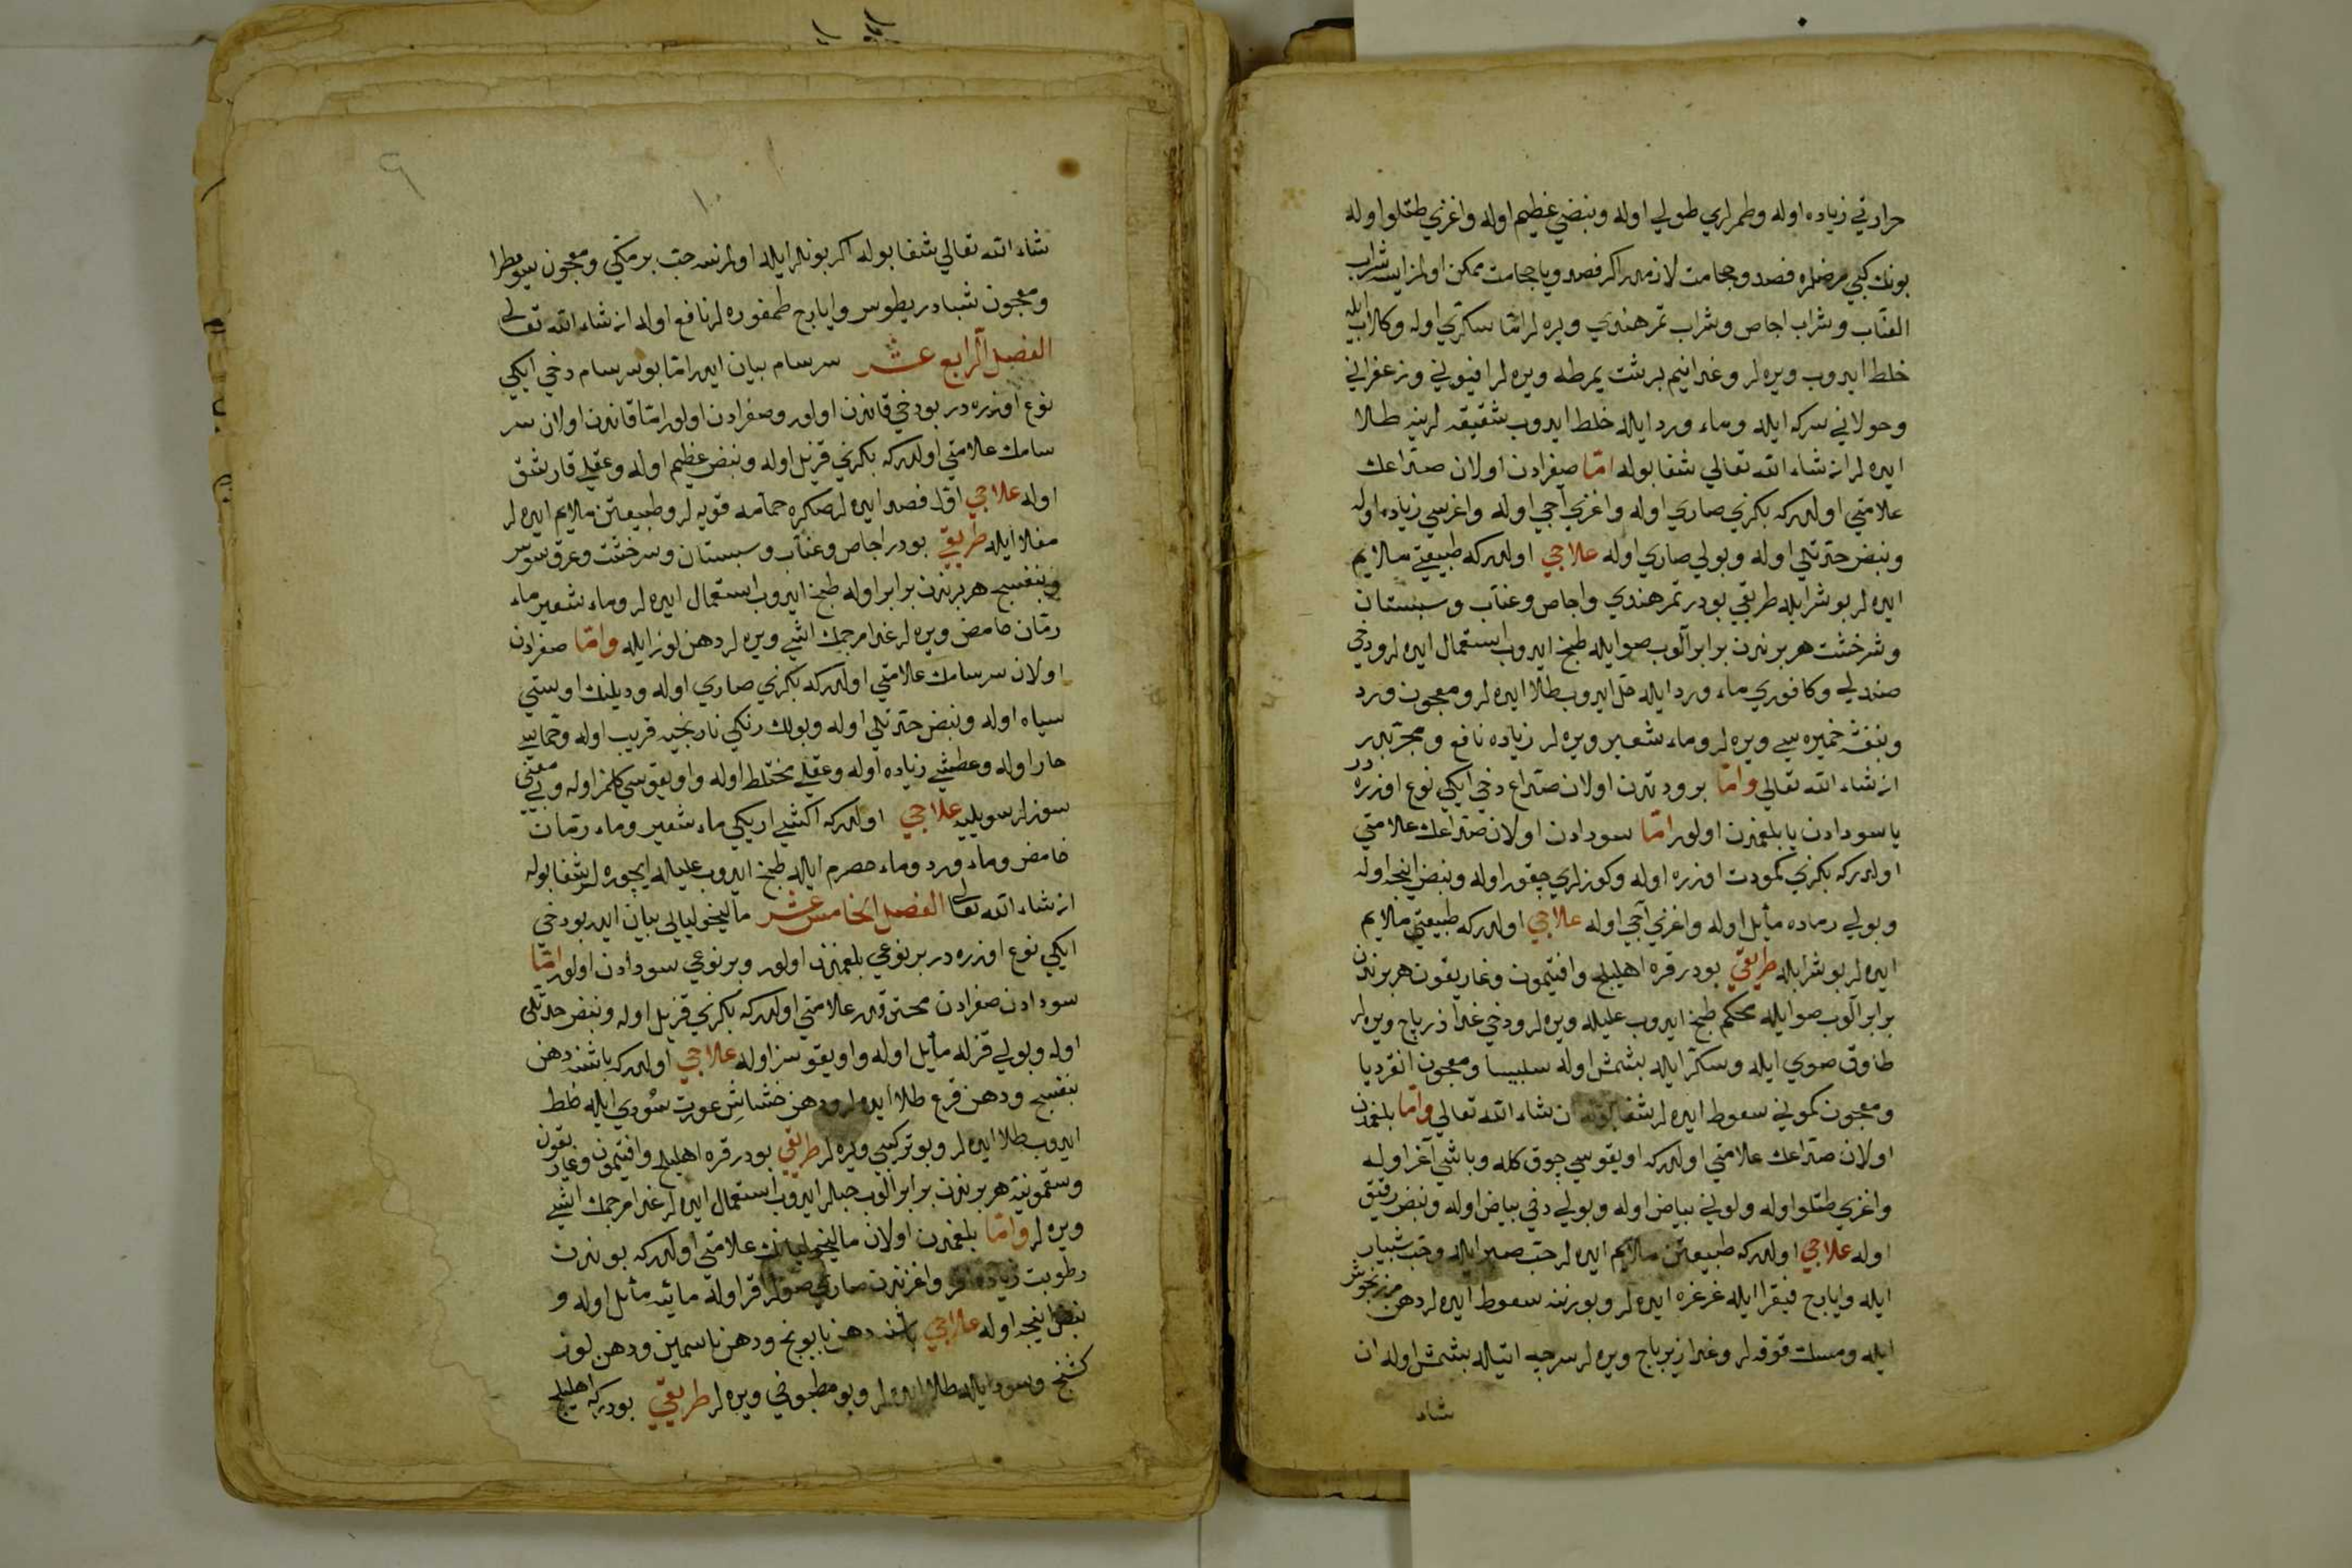 حرارتي زياده اوله وطمرلري طولي اوله ونبضي عظيم اوله واغزي طتلو اوله
بونك كبي مرضلره فصد وحجامت لازمدر اكر فصد ويا حجامت ممكن اولمز ايسه شراب
العنّاب وشراب اجاص وشراب تمر هندي ويره لر امّا سكّري اوله وكلاب ايله
خلط ايدوب ويره لر وغدا نيم برشت يمرطه ويره لر افيوني وزعفراني
وحولاني سركه ايله وماء ورد ايله خلط ايدوب شقيقه لرينه طلا
ايده لر ان شاء الله تعالي شفا بوله امّا صفرادن اولان صداعك
علامتي اولدركه بكزي صاري اوله واغزي آجي اوله واغريسي زياده اوله
ونبض حدّتلي اوله وبولي صاري اوله علاجي اولدركه طبيعتي ملايم
ايده لر بو شرابله طريقي بودر تمر هندي واجاص وعنّاب وسبستان
وشرخشت هر بوندن برابر آلوب صو ايله طبخ ايدوب استعمال ايده لر ودخي
صندلي وكافوري ماء ورد ايله حل ايدوب طلا ايده لر ومعجون ورد
وبنفشه خميره سي ويره لر وماء شعير ويره لر زياده نافع ومجرّبدر
ان شاء الله تعالي وامّا برودتدن اولان صداع دخي ايكي نوع اوزره در
يا سودادن يا بلغمدن اولور امّا سودادن اولان صداعك علامتي
اولدركه بكزي كمودت اوزره اوله وكوزلري چقور اوله ونبض اينجه اوله
وبولي رماده مأيل اوله واغزي آجي اوله علاجي اولدركه طبيعتي ملايم
ايده لر بو شرابله طريقي بودر قره اهليلج وافتيمون وغاريقون هر بوندن
برابر آلوب صو ايله محكم طبخ ايدوب عليله ويره لر ودخي غدا زرباج ويره لر
طاوق صوي ايله وسكّر ايله بشمش اوله سلبيسا ومعجون انقرديا
ومعجون كموني سعوط ايده لر شفا بوله ان شاء الله تعالي وامّا بلغمدن
اولان صداعك علامتي اولدركه اويقوسي چوق كله وباشي آغر اوله
واغزي طتلو اوله ولوني بياض اوله وبولي دخي بياض اوله ونبض رقيق
اوله علاجي اولدركه طبيعتن ملايم ايده لر حب صبر ايله وحب شبيار
ايله وايارج فيقرا ايله غرغره ايده لر وبورنينه سعوط ايده لر دهن مرزنجوش
ايله ومسك قوقه لر وغدا زيرباج ويره لر سرچه اتيله بشمش اوله ان
شاء
شاء الله تعالي شفا بوله اكر بونلر ايله اولمزسه حب برمكّي ومعجون سوطرا
ومعجون شبادريطوس وايارج طمفوره لر نافع اوله ان شاء الله تعالي
الفصل الرابع عشر سرسام بيان ايدر امّا بو سرسام دخي ايكي
نوع اوزره در بو دخي قاندن اولور وصفرادن اولور امّا قاندن اولان سر
سامك علامتي اولدركه بكزي قزل اوله ونبض عظيم اوله وعقلي قارشق
اوله علاجي اوّل فصد ايده لر صكره حجامه قويه لر وطبيعتن ملايم ايده لر
مغلا ايله طريقي بودر اجاص وعنّاب وسبستان وسرخشت وعرق سوس
وبنفسج هر بريندن برابر اوله طبخ ايدوب استعمال ايده لر وماء شعير ماء
رمّان حامض ويره لر غدا مرجمك اشي ويره لر دهن لوز ايله وامّا صفرادن
اولان سرسامك علامتي اولدركه بكزي صاري اوله وديلنك اوستي
سياه اوله ونبض حدّتلي اوله وبولك رنكي نارنجيه قريب اوله وحمّاسي
حار اوله وعطشي زياده اوله وعقلي مختلط اوله واويقوسي كلمز اوله وبي معني
سوزلر سويليه علاجي اولدركه اكشي اريكي ماء شعير وماء رمّان
حامض وماء ورد وماء حصرم ايله طبخ ايدوب عليله ايچوره لر شفا بوله
ان شاء الله تعالي الفصل الخامس عشر ماليخوليايي بيان ايدر بو دخي
ايكي نوع اوزره در بر نوعي بلغمدن اولور وبر نوعي سودادن اولور امّا
سودادن صفرادن محترقدر علامتي اولدركه بكزي قزل اوله ونبض حدّتلي
اوله وبولي قزله مأيل اوله واويقوسز اوله علاجي اولدركه باشنه دهن
بنفسج ودهن قرع طلا ايده لر ودهن خشاش عورت سودي ايله خلط
ايدوب طلا ايده لر وبو تركيبي ويره لر طريقي بودر قره اهليلج وافتيمون وغاريقون
وسقمونيه هر بوندن برابر آلوب حبلر ايدوب استعمال ايده لر غدا مرجمك اشي
ويره لر وامّا بلغمدن اولان ماليخوليانك علامتي اولدركه بوندن
رطوبت زياده واغزندن صاري صولر اقر اوله مائيه مأيل اوله و
نبض اينجه اوله علاجي باشنه دهن بابونج ودهن ياسمين ودهن لوز
وسود ايله طلا ايده لر وبو مطبوخي ويره لر طريقي بودركه اهليلج